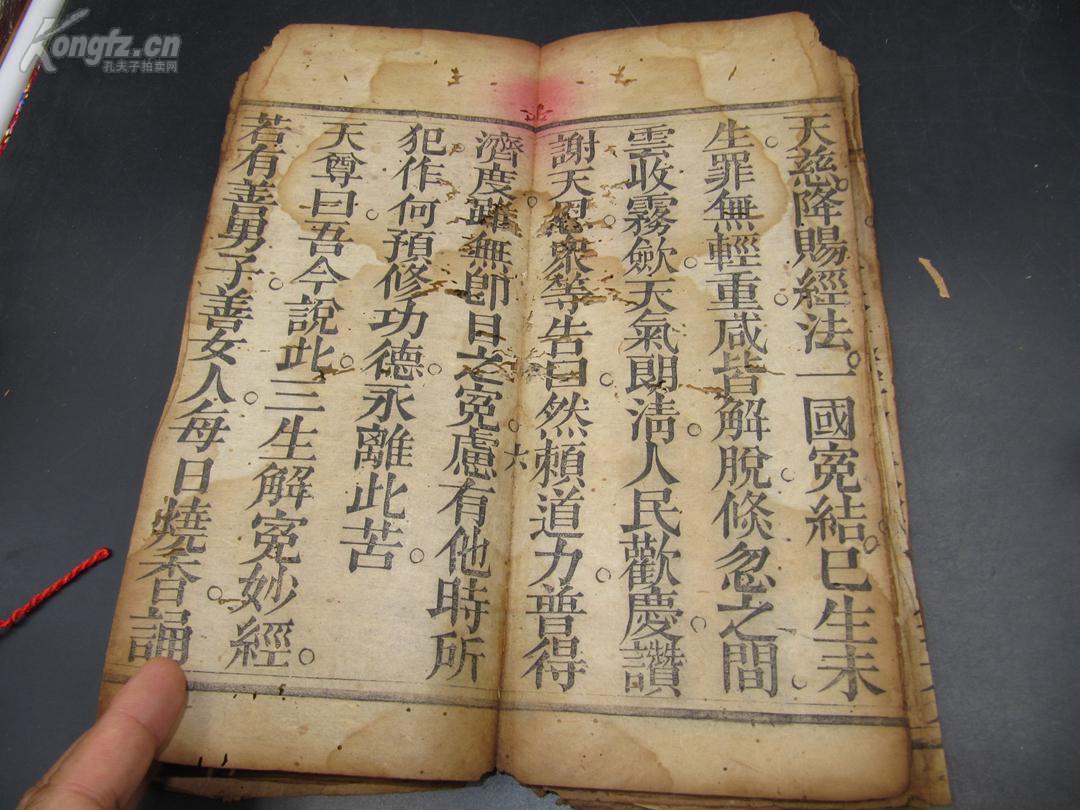 天慈。降賜經法。一國寃結。巳生未
生。罪無輕重。咸皆解脫。倐忽之間。
雲收霧歛。天氣朗清。人民歡慶。讚
謝天恩。衆等告曰。然頼道力。普得
六
濟度。雖無即日之寃。慮有他時所
犯。作何預修功德。永離此苦。
天尊曰。吾今說此。三生解寃妙經。
若有善男子。善女人。每日燒香。誦
Kongfz.cn
孔夫子拍卖网